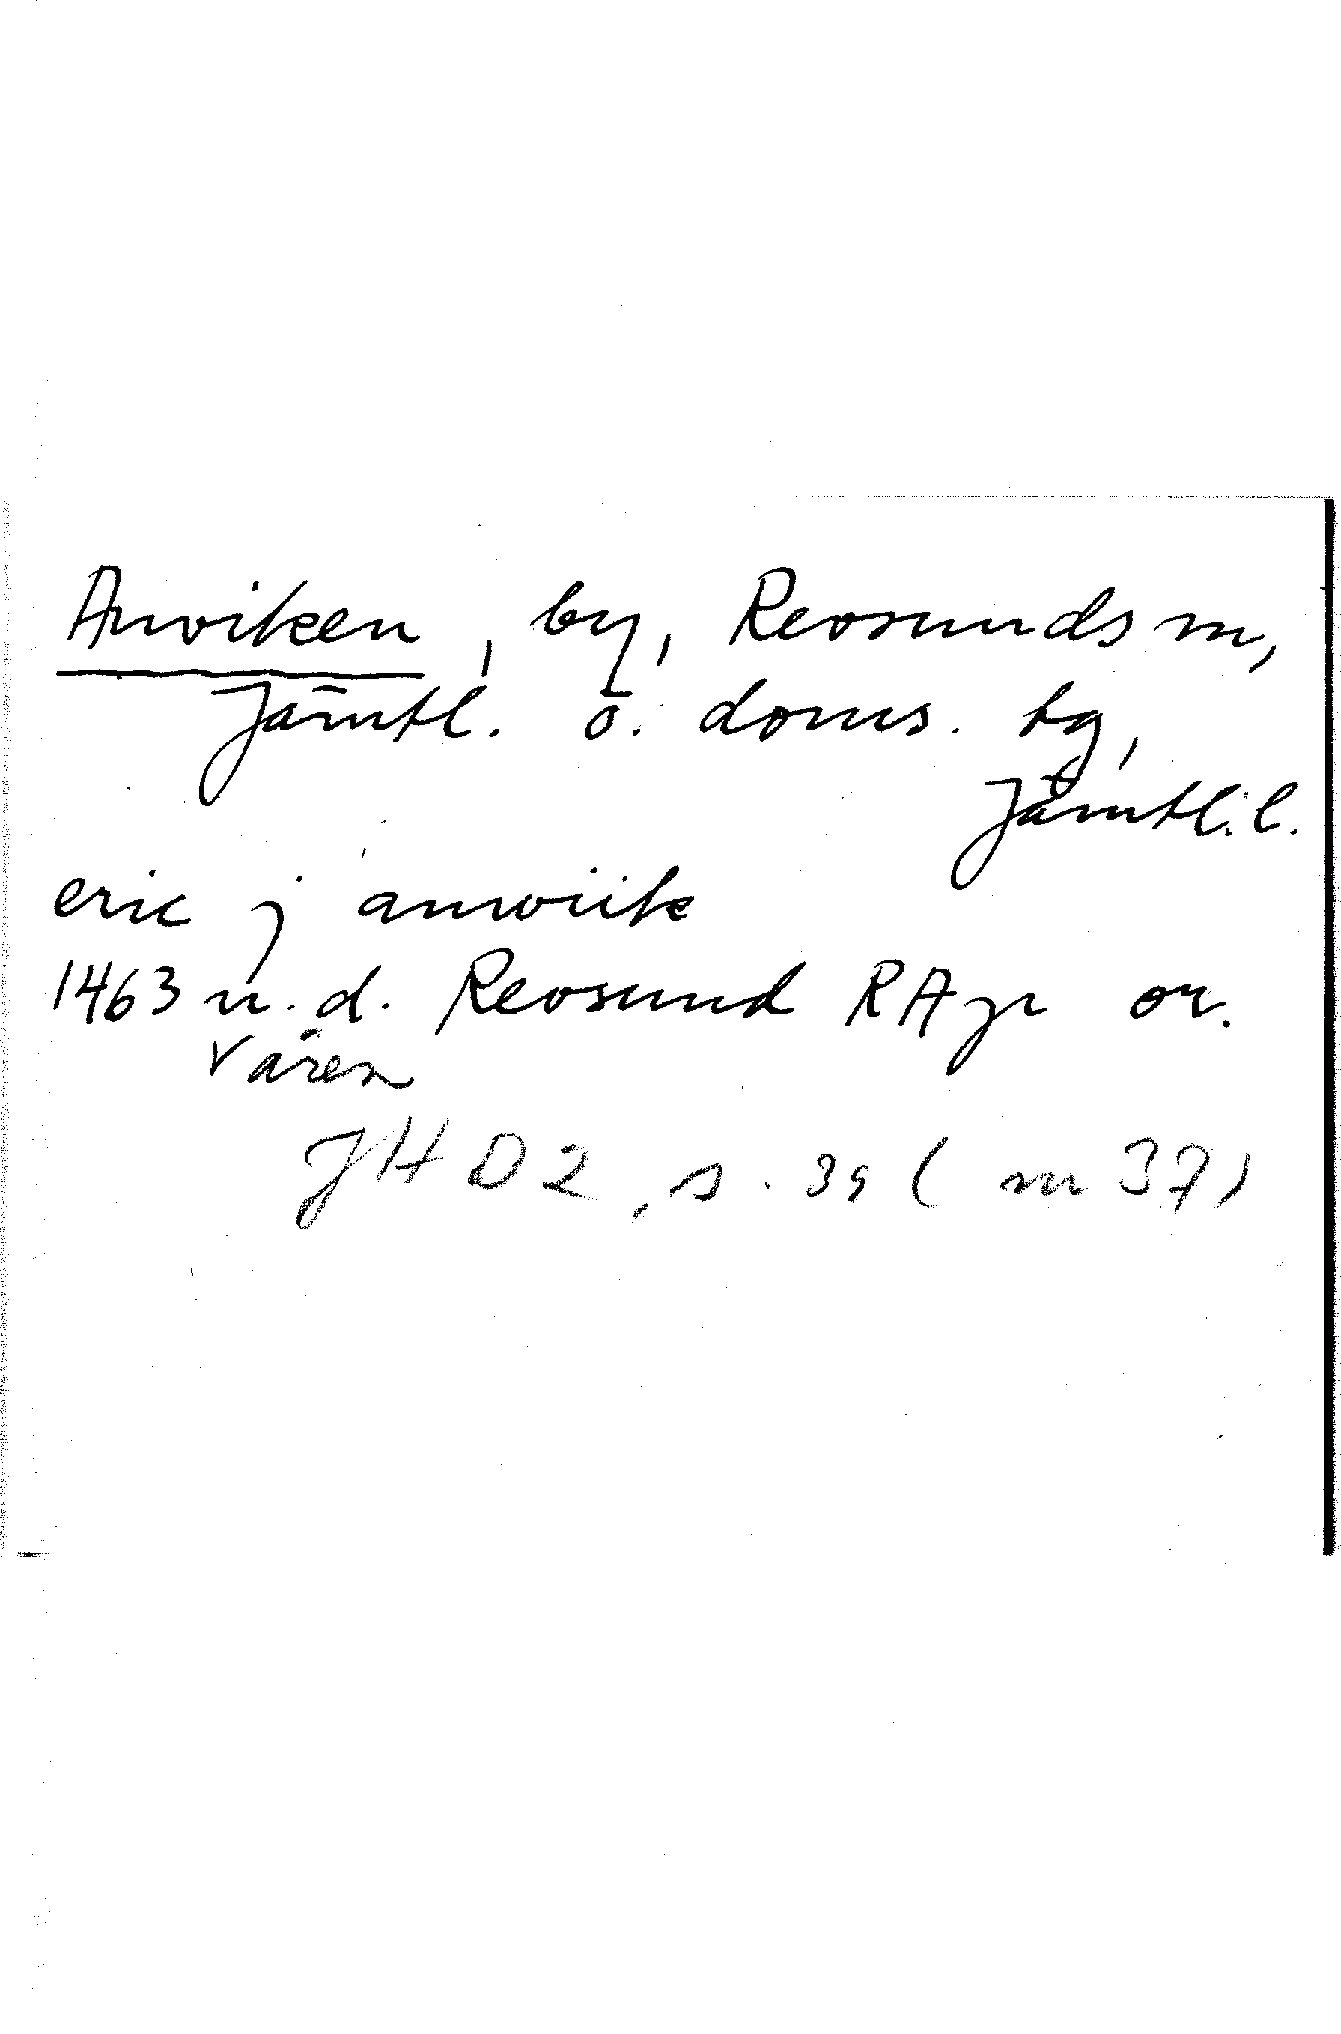 Anviken, by, Revsunds sn,
Jämtl. ö. doms. tg,
Jämtl. l.
eric j anwiik
1463 u. d. Revsund RApr or.
Våren
JHD2, s. 39 (nr 37)